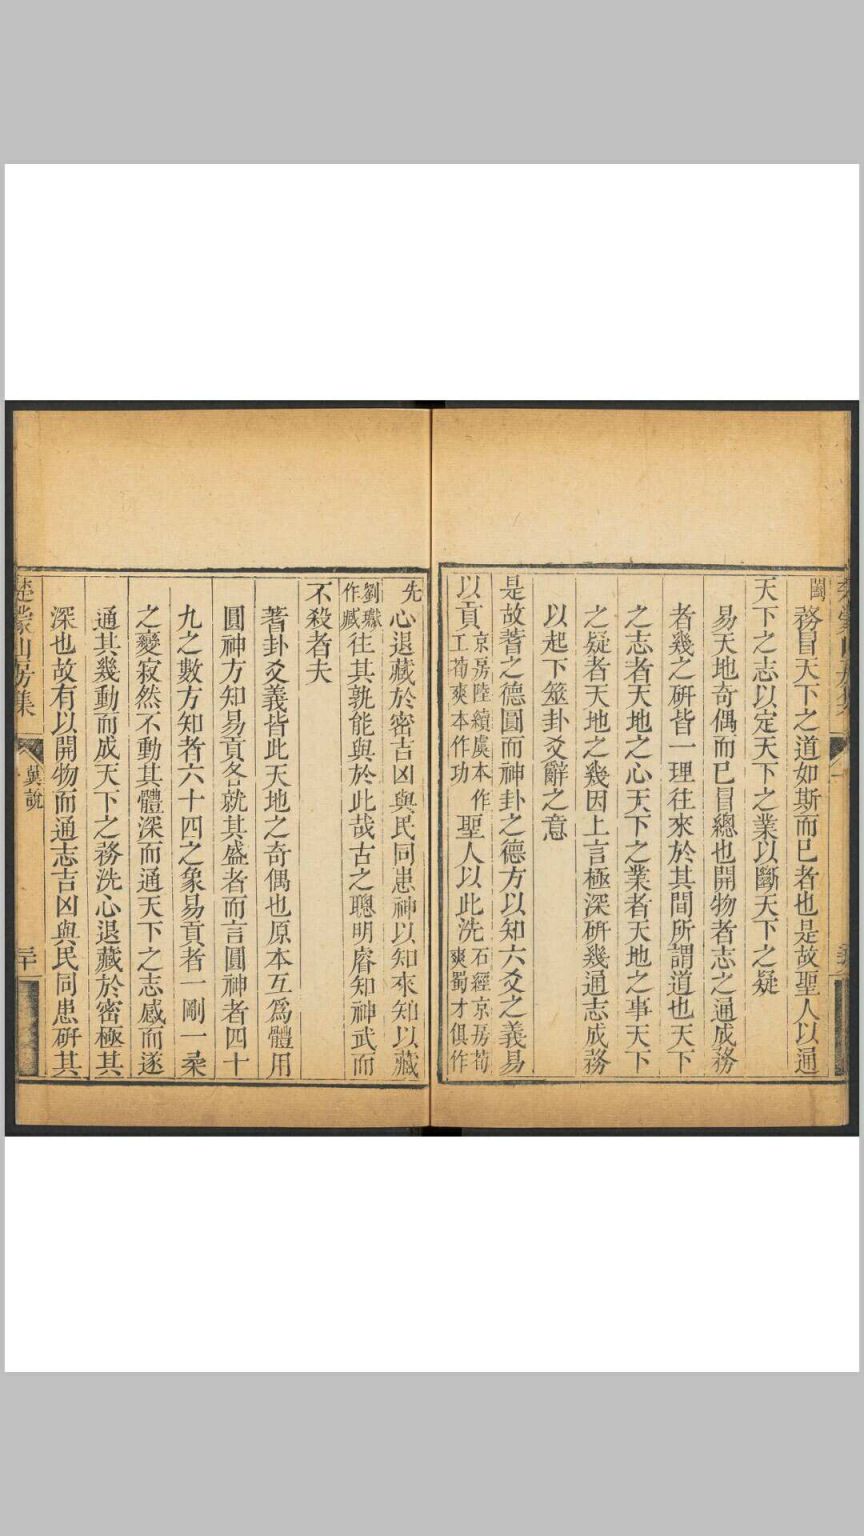 闓務冒天下之道如斯而已者也是故聖人以通
天下之志以定天下之業以斷天下之疑
易天地奇偶而已冒總也開物者志之通成務
者幾之研皆一理往來於其間所謂道也天下
之志者天地之心天下之業者天地之事天下
之疑者天地之幾因上言極深研幾通志成務
以起下筮卦爻辭之意
是故蓍之德圓而神卦之德方以知六爻之義易
以貢京房陸績虞本作工荀爽本作功聖人以此洗石經京房荀爽蜀才俱作
先心退藏於密吉凶與民同患神以知來知以藏
劉瓛作臧往其孰能與於此哉古之聰明睿知神武而
不殺者夫
蓍卦爻義皆此天地之奇偶也原本互爲體用
圓神方知易貢各就其盛者而言圓神者四十
九之數方知者六十四之象易貢者一剛一柔
之變寂然不動其體深而通天下之志感而遂
通其幾動而成天下之務洗心退藏於密極其
深也故有以開物而通志吉凶與民同患研其
楚蒙山房集